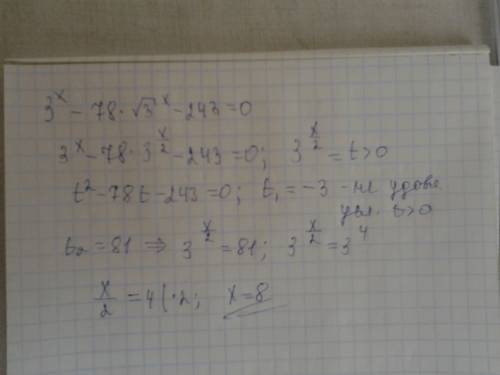 3^x - 78·√3^x - 243 = 0
3^x - 78·3^(x/2) - 243 = 0; 3^(x/2) = t > 0
t² - 78t - 243 = 0; t₁ = -3 - не удовл.
усл. t > 0
t₂ = 81 ⇒ 3^(x/2) = 81; 3^(x/2) = 3^4
x/2 = 4 | ·2; x = 8